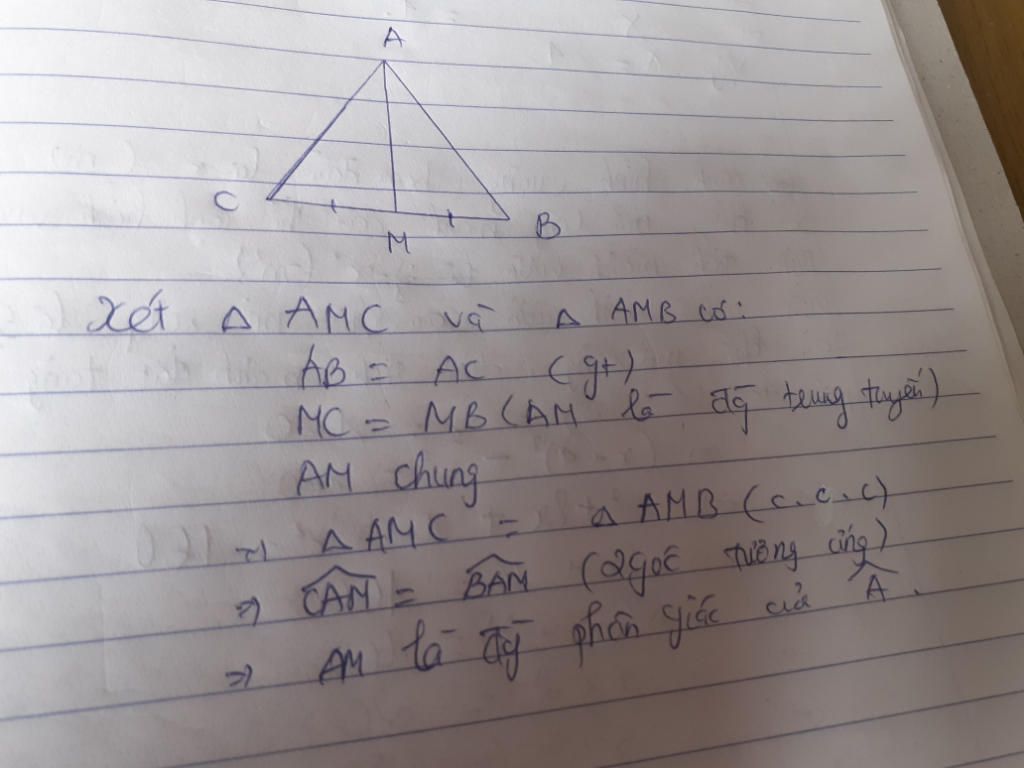 A
C
M
B
Xét Δ AMC và Δ AMB có:
AB = AC (gt)
MC = MB (AM là đg trung tuyến)
AM chung
=> Δ AMC = Δ AMB (c.c.c)
=> \widehat{CAM} = \widehat{BAM} (2 góc tương ứng)
=> AM là đg phân giác của \widehat{A}.